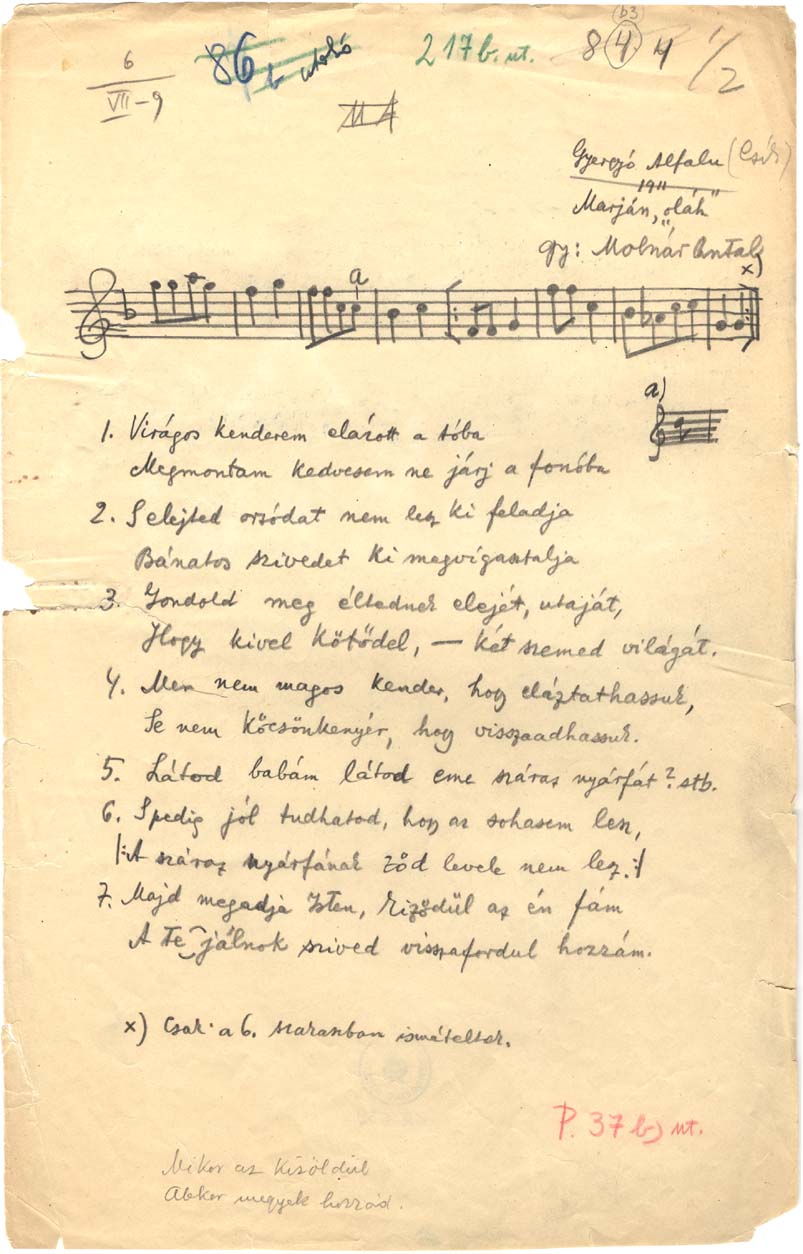 b3
6
VII-9
86
b utolsó
217b. ut.
8 4 4
1/2
MA
Gyergyó Alfalu (Csík)
1911
Marján, „oláh"
gy: Molnár Antal
x)
a
a)
1. Virágos kenderem elázott a tóba
Megmontam kedvesem ne járj a fonóba
2. S elejted orsódat nem lesz ki feladja
Bánatos szivedet ki megvígasztalja
3. Gondold meg éltednek elejét, utaját,
Hogy kivel kötődel, — két szemed világát.
4. Mer nem magos kender, hogy eláztathassuk,
Se nem kőcsönkenyér, hogy visszaadhassuk.
5. Látod babám látod eme száraz nyárfát? stb.
6. S pedig jól tudhatod, hogy az sohasem lesz,
|: A száraz nyárfának ződ levele nem lesz. :|
7. Majd megadja Isten, kiződül az én fám
A Te jálnok szived visszafordul hozzám.
x) Csak a 6. szakaszban ismételték.
P. 37 b) ut.
Mikor az kizöldül
Akkor megyek hozzád.